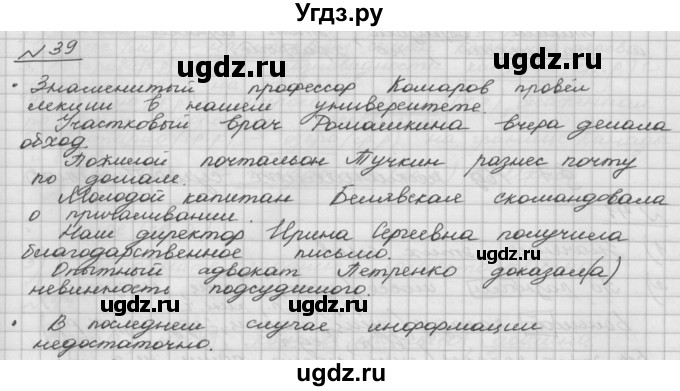 Угдз.ру
№39
ugdz.ru ugdz.ru
• Знаменитый профессор Комаров провёл
лекции в нашем университете.
Участковый врач Ромашкина вчера делала
обход.
ugdz.ru ugdz.ru
Пожилой почтальон Тучкин разнес почту
по домам.
ugdz.ru
Молодой капитан Белявская скомандовала
о причаливании.
Наш директор Ирина Сергеевна получила
благодарственное письмо.
ugdz.ru ugdz.ru
Опытный адвокат Петренко доказал(а)
невинность подсудимого.
ugdz.ru ugdz.ru
• В последнем случае информации
недостаточно.
ugdz.ru